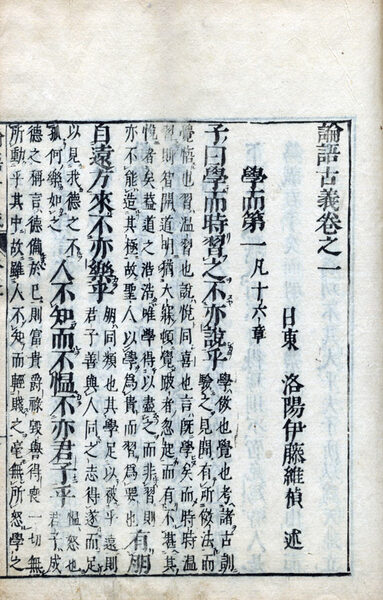 論語古義卷之一
日東 洛陽伊藤維楨 述
學而第一 凡十六章
子曰學而時習之不亦說乎 學傚也覺也考諸古訓
驗之見聞有所傚法而
覺悟也習溫習也說悅同喜也言既學矣而時時溫
習則智開道明猶大寐頓覺跛者忽起而有不堪其
悅者矣蓋道之浩浩唯學得以盡之而非習則
亦不能造其極故聖人以學爲貴而習爲要也 有朋
自遠方來不亦樂乎 朋同類也其學足以被乎遠則
君子善與人同之志得遂而足
以見我德之不
孤何樂如之 人不知而不慍不亦君子乎 慍怒也
君子成
德之稱言德備於己則富貴爵祿毀譽得喪一切無
所動乎其中故雖人不知而輕賤之毫無所怒學之